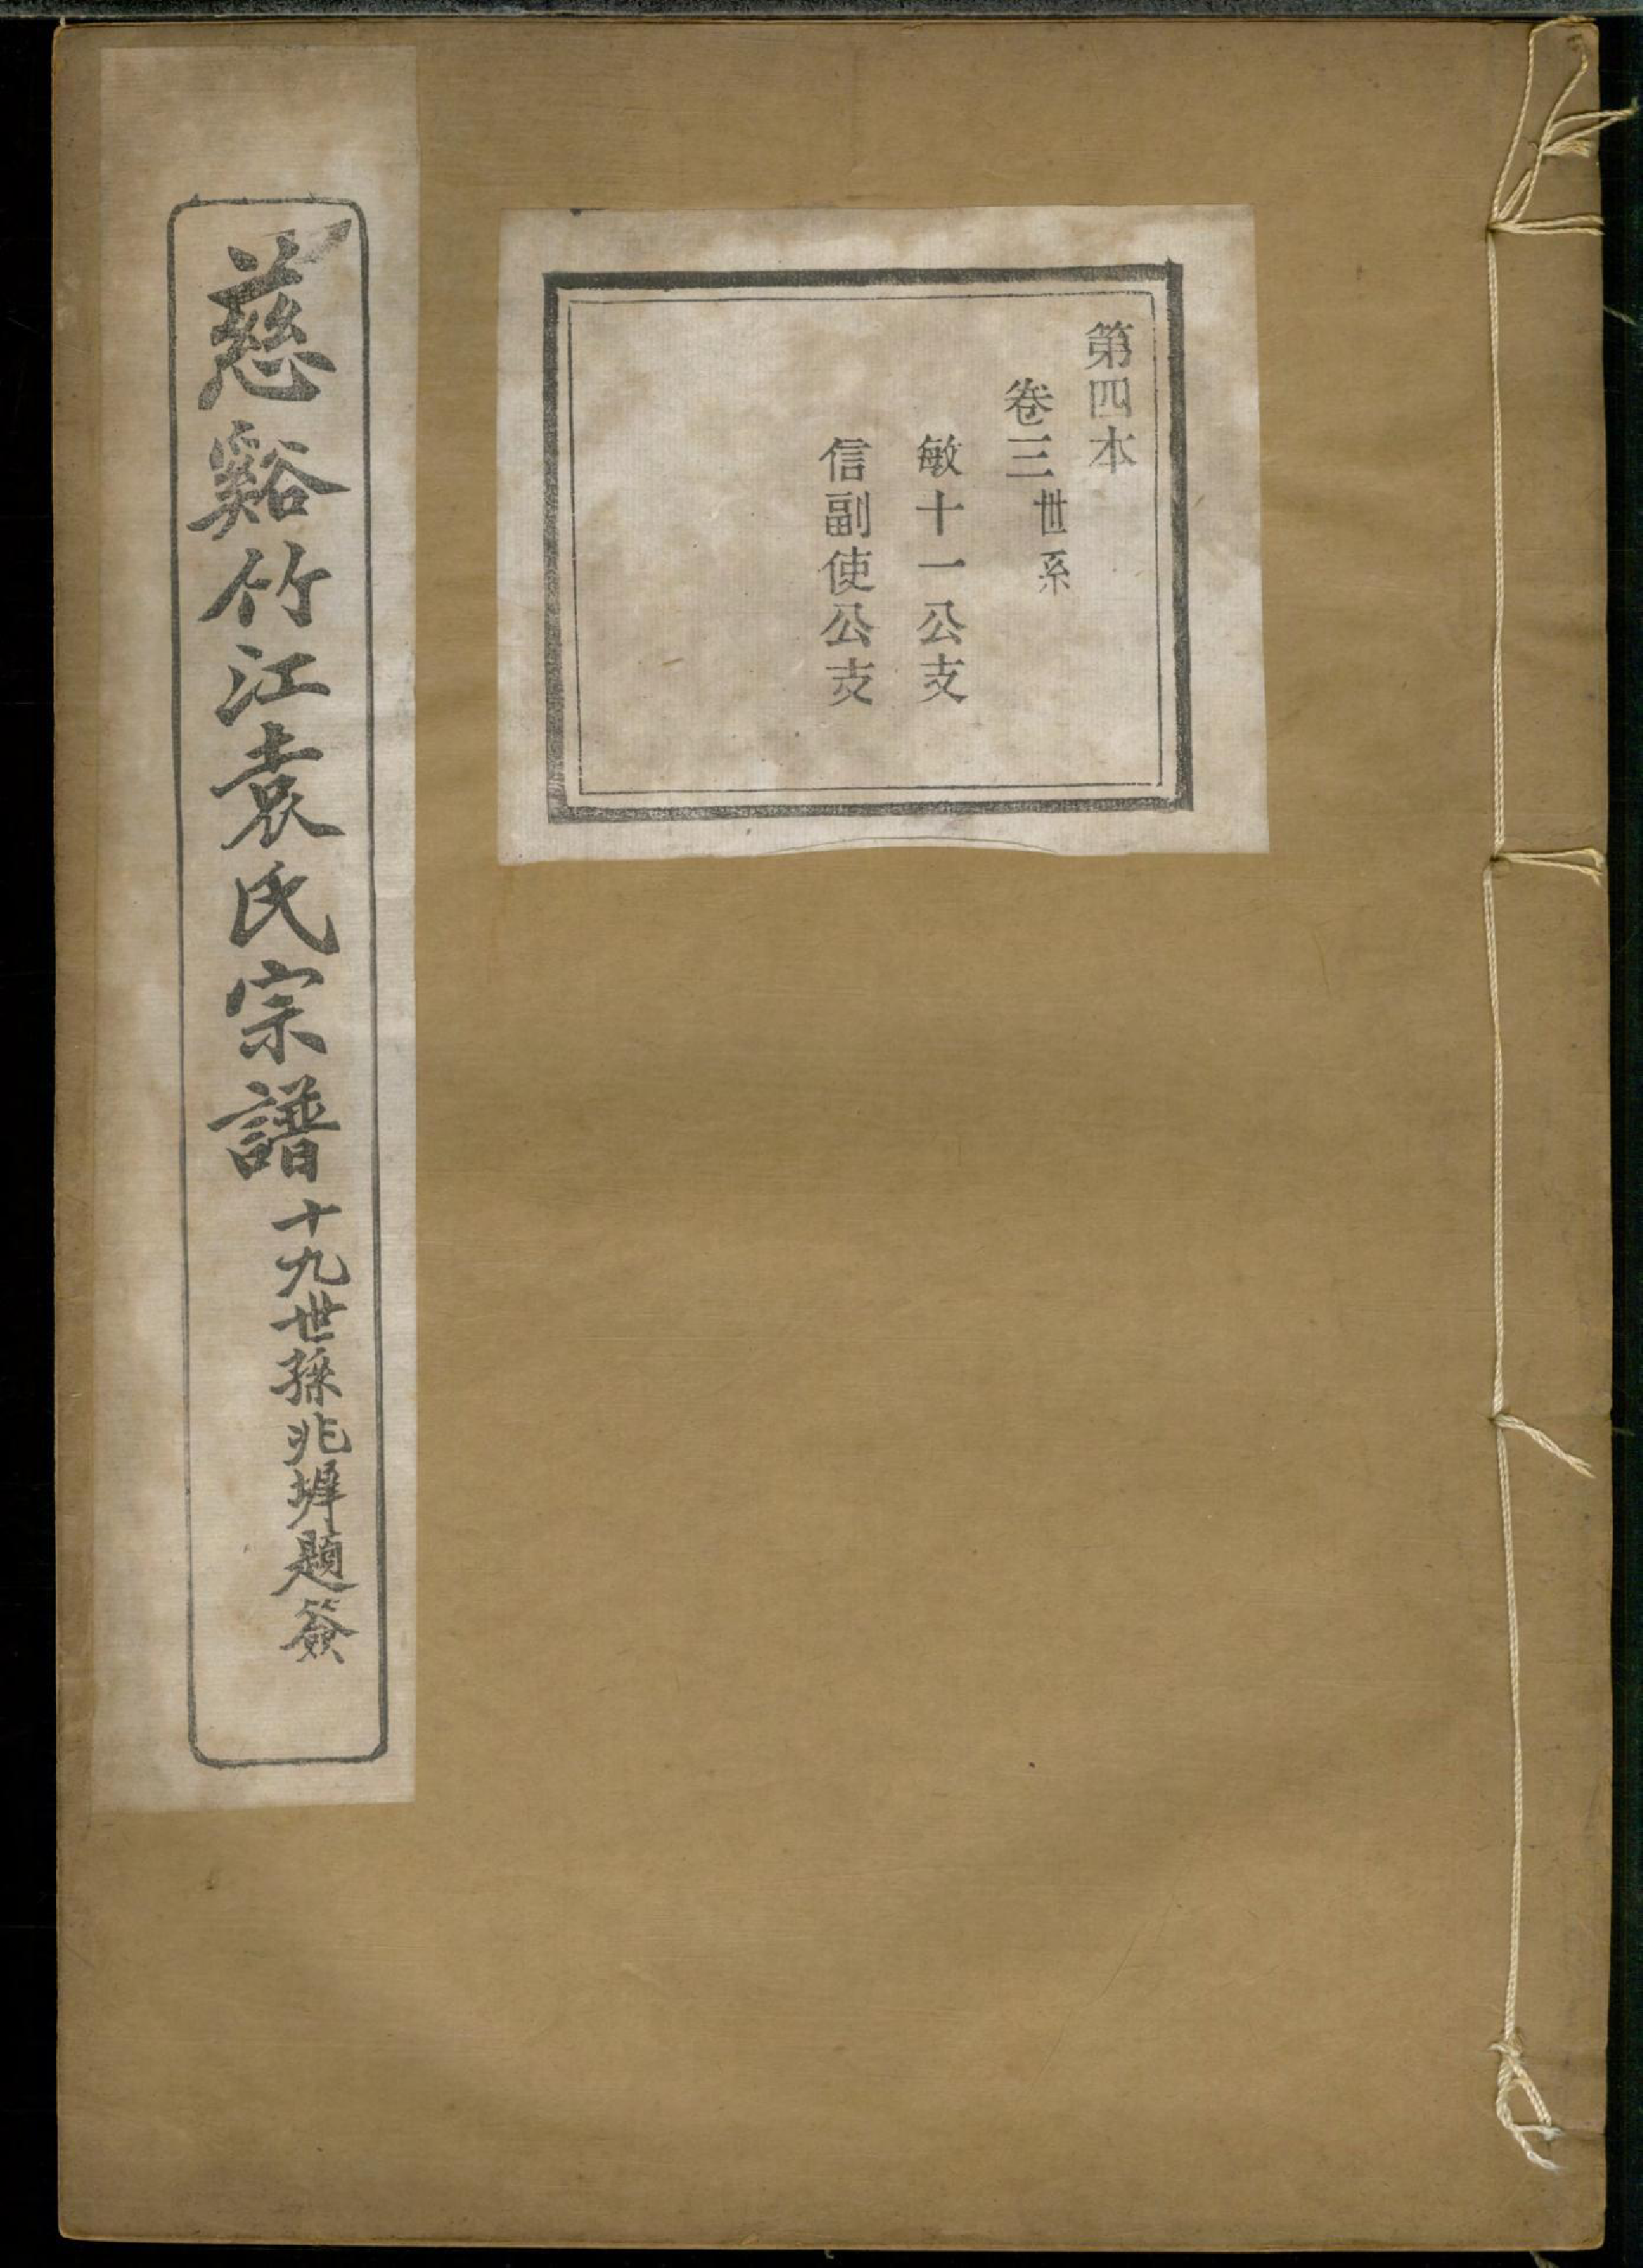 第四本
卷三世系
敏十一公支
信副使公支
慈谿竹江袁氏宗譜
十九世孫兆墀題簽